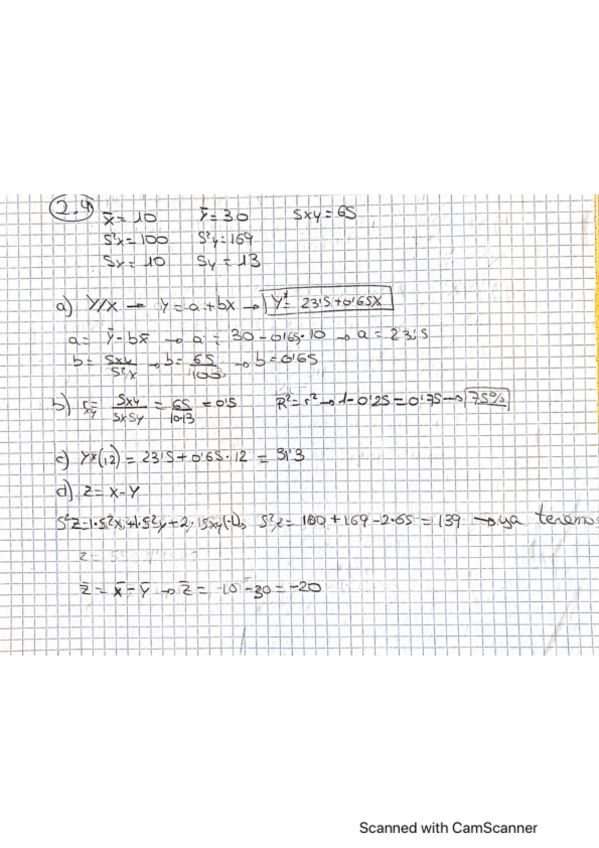 2.4
x̄ = 10 ȳ = 30 Sxy = 65
S²x = 100 S²y = 169
Sx = 10 Sy = 13
a) Y/X → y = a + bx → Y* = 23'5 + 0'65X
a = ȳ - bx̄ → a = 30 - 0'65·10 → a = 23'5
b = Sxy/S²x → b = 65/100 → b = 0'65
b) rxy = Sxy/SxSy = 65/10·13 = 0'5 R² = r² → 1 - 0'25 = 0'75 → 75%
c) Yx(12) = 23'5 + 0'65·12 = 31'3
d) Z = X - Y
S²z = 1·S²x + 1·S²y + 2·1Sxy(-1) S²z = 100 + 169 - 2·65 = 139 → ya tenemos
z̄ = x̄ - ȳ → z̄ = 10 - 30 = -20
Scanned with CamScanner